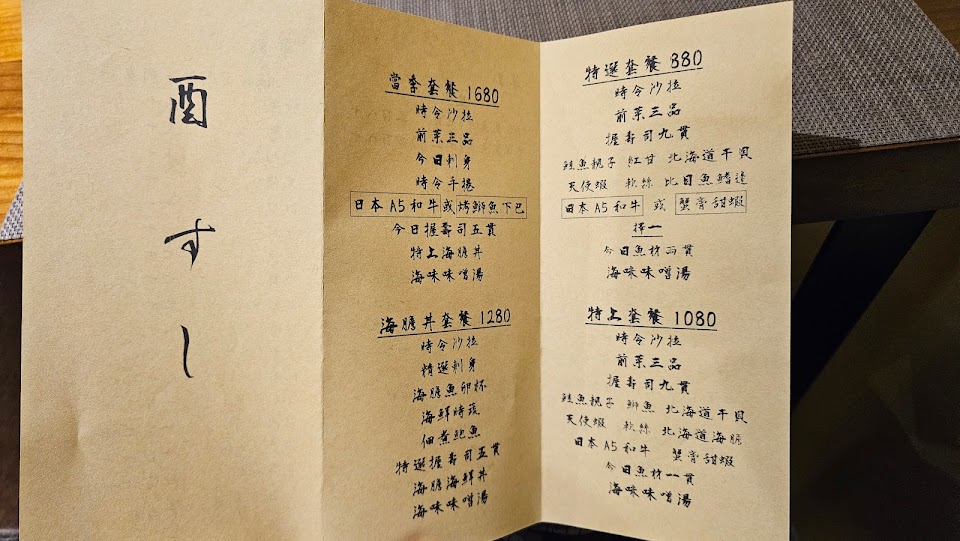 酉すし
當季套餐 1680
時令沙拉
前菜三品
今日刺身
時令手捲
日本A5和牛或烤鰤魚下巴
今日握壽司五貫
特上海膽丼
海味味噌湯
海膽丼套餐 1280
時令沙拉
精選刺身
海膽魚卵杯
海鮮時蔬
佃煮鮑魚
特選握壽司五貫
海膽海鮮丼
海味味噌湯
特選套餐 880
時令沙拉
前菜三品
握壽司九貫
鮭魚親子 紅甘 北海道干貝
天使蝦 軟絲 比目魚鰭邊
日本A5和牛 或 蟹膏甜蝦
擇一
今日魚材兩貫
海味味噌湯
特上套餐 1080
時令沙拉
前菜三品
握壽司九貫
鮭魚親子 鰤魚 北海道干貝
天使蝦 軟絲 北海道海膽
日本A5和牛 蟹膏甜蝦
今日魚材一貫
海味味噌湯